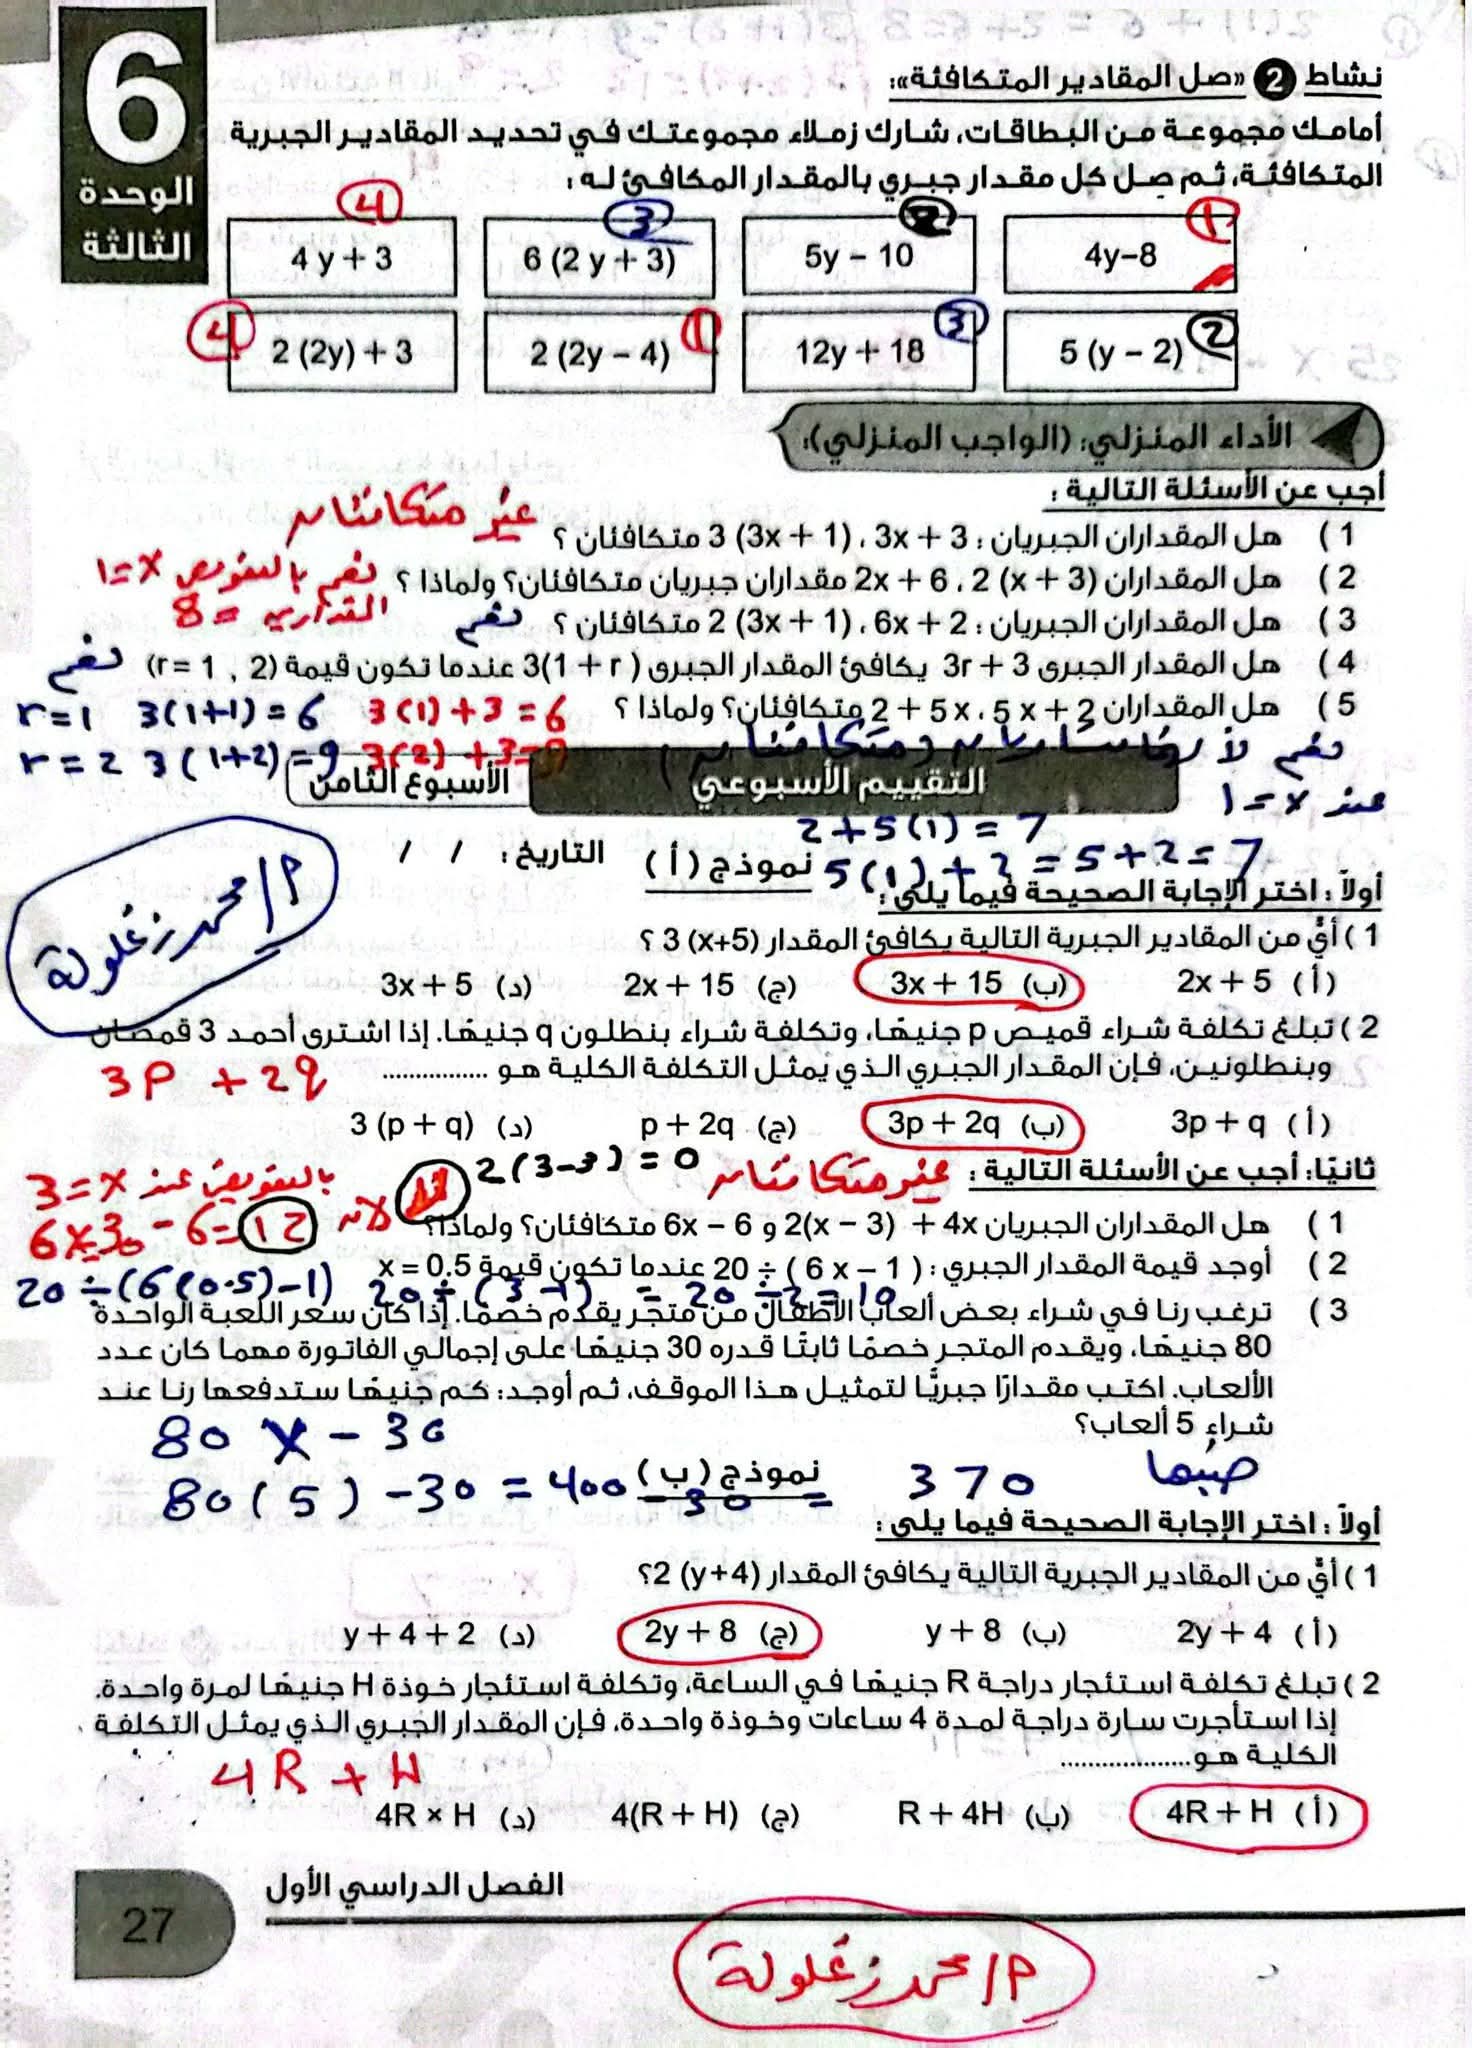 6
الوحدة
الثالثة
نشاط 2 «صل المقادير المتكافئة»:
أمامك مجموعة من البطاقات، شارك زملاء مجموعتك في تحديد المقادير الجبرية
المتكافئة، ثم صل كل مقدار جبري بالمقدار المكافئ له:
1 2 3 4
4y–8 5y – 10 6 (2 y + 3) 4 y + 3
2 3 1 4
5 (y – 2) 12y + 18 2 (2y – 4) 2 (2y) + 3
الأداء المنزلي: (الواجب المنزلي):
أجب عن الأسئلة التالية :
1 ) هل المقداران الجبريان : 3x + 3 ، 3 (3x + 1) متكافئان ؟ غير متكافئان
2 ) هل المقداران 2x + 6 ، 2 (x + 3) مقداران جبريان متكافئان؟ ولماذا ؟ نعم بالتعويض x = 1
المقدارين = 8
3 ) هل المقداران الجبريان : 6x + 2 ، 2 (3x + 1) متكافئان ؟ نعم
4 ) هل المقدار الجبرى 3r + 3 يكافئ المقدار الجبرى 3(1 + r ) عندما تكون قيمة (r= 1 , 2) نعم
r = 1 3(1+1) = 6 3(1) + 3 = 6
5 ) هل المقداران 5x + 2 ، 2 + 5x متكافئان؟ ولماذا ؟
r = 2 3(1+2) = 9 3(2) + 3 = 9
نعم لأنهما متساويان (متكافئان)
عند x = 1
التقييم الأسبوعي الأسبوع الثامن
2 + 5(1) = 7
5(1) + 2 = 5 + 2 = 7
نموذج ( أ ) التاريخ: / /
م/ محمد زغلولة
أولاً : اختر الإجابة الصحيحة فيما يلى :
1 ) أيٌّ من المقادير الجبرية التالية يكافئ المقدار 3 (x+5) ؟
( أ ) 2x + 5 (ب) 3x + 15 (ج) 2x + 15 (د) 3x + 5
2 ) تبلغ تكلفة شراء قميص p جنيهًا، وتكلفة شراء بنطلون q جنيهًا. إذا اشترى أحمد 3 قمصان
وبنطلونين، فإن المقدار الجبري الذي يمثل التكلفة الكلية هو ................
3P + 2q
( أ ) 3p + q (ب) 3p + 2q (ج) p + 2q (د) 3 (p + q)
ثانيًا: أجب عن الأسئلة التالية : غير متكافئان 2(3-3) = 0
1 ) هل المقداران الجبريان 2(x – 3) + 4x و 6x – 6 متكافئان؟ ولماذا؟
لأن بالتعويض عند x = 3
6×3 - 6 = 12
2 ) أوجد قيمة المقدار الجبري : 20 ÷ ( 6 x – 1 ) عندما تكون قيمة x = 0.5
20 ÷ (6(0.5) - 1) 20 ÷ (3 - 1) = 20 ÷ 2 = 10
3 ) ترغب رنا في شراء بعض ألعاب الأطفال من متجر يقدم خصمًا. إذا كان سعر اللعبة الواحدة
80 جنيهًا، ويقدم المتجر خصمًا ثابتًا قدره 30 جنيهًا على إجمالي الفاتورة مهما كان عدد
الألعاب. اكتب مقدارًا جبريًّا لتمثيل هذا الموقف، ثم أوجد: كم جنيهًا ستدفعها رنا عند
شراء 5 ألعاب؟
80 x - 30
80(5) - 30 = 400 - 30 = 370 جنيها
نموذج ( ب )
أولاً : اختر الإجابة الصحيحة فيما يلى :
1 ) أيٌّ من المقادير الجبرية التالية يكافئ المقدار 2 (y+4)؟
( أ ) 2y + 4 (ب) y + 8 (ج) 2y + 8 (د) y + 4 + 2
2 ) تبلغ تكلفة استئجار دراجة R جنيهًا في الساعة، وتكلفة استئجار خوذة H جنيهًا لمرة واحدة.
إذا استأجرت سارة دراجة لمدة 4 ساعات وخوذة واحدة، فإن المقدار الجبري الذي يمثل التكلفة
الكلية هو...................
4R + H
( أ ) 4R + H (ب) R + 4H (ج) 4(R + H) (د) 4R × H
الفصل الدراسي الأول
27
م/ محمد زغلولة